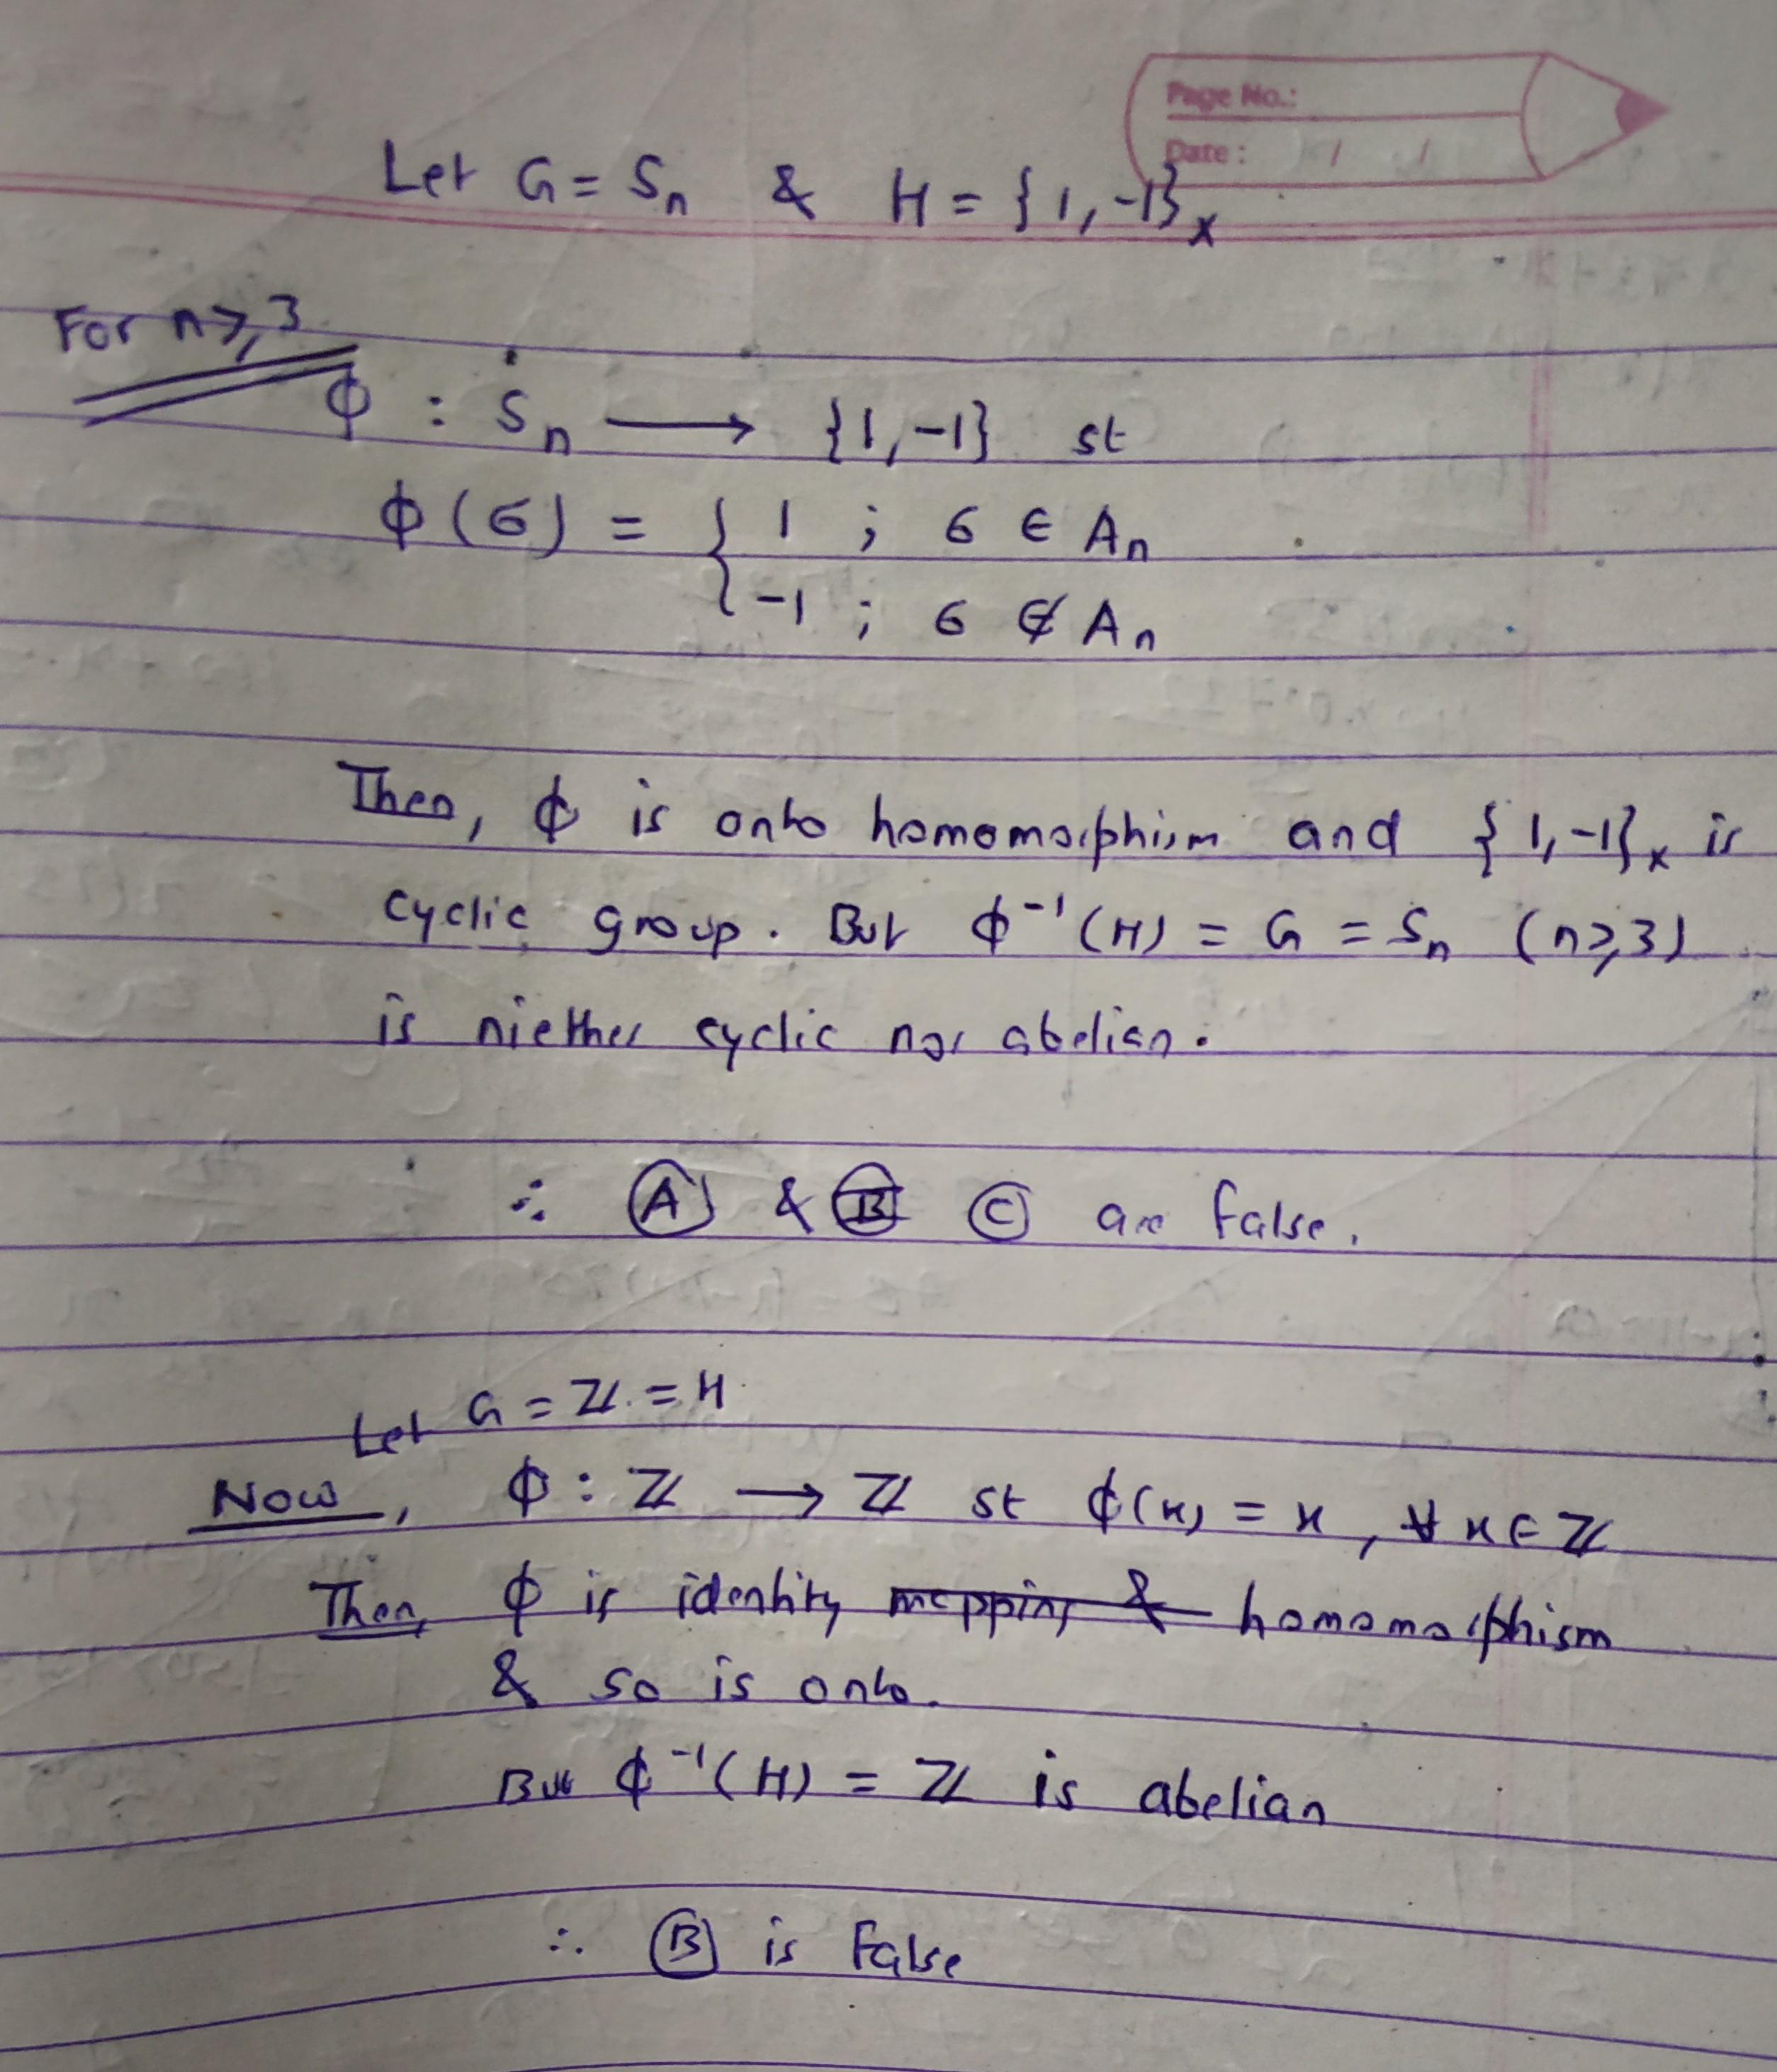 Page No.:
Date : / /
Let G = Sn & H = {1, -1}x
For n ≥ 3
ϕ : Sn ⟶ {1, -1} st
ϕ(σ) = { 1 ; σ ∈ An
-1 ; σ ∉ An
Then, ϕ is onto homomorphism and {1, -1}x is
cyclic group. But ϕ⁻¹(H) = G = Sn (n ≥ 3)
is niether cyclic nor abelian.
∴ Ⓐ & Ⓑ Ⓒ are false.
Let G = ℤ = H
Now, ϕ : ℤ ⟶ ℤ st ϕ(x) = x, ∀ x ∈ ℤ
Then, ϕ is identity mapping & homomorphism
& so is onto.
But ϕ⁻¹(H) = ℤ is abelian
∴ Ⓑ is False